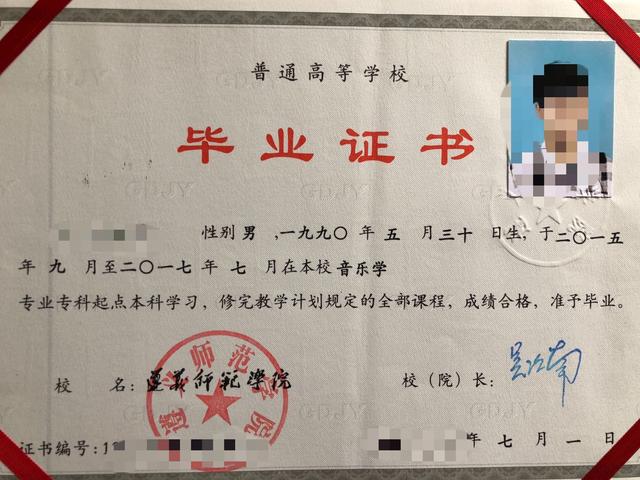 普通高等学校
毕业证书
性别 男 ,一九九〇 年 五 月 三十 日生，于 二〇一五
年 九 月至 二〇一七 年 七 月在本校 音乐学
专业专科起点本科学习，修完教学计划规定的全部课程，成绩合格，准予毕业。
校 名：遵义师范学院 校（院）长：
遵义师范学院
证书编号：1 年 七 月 一 日